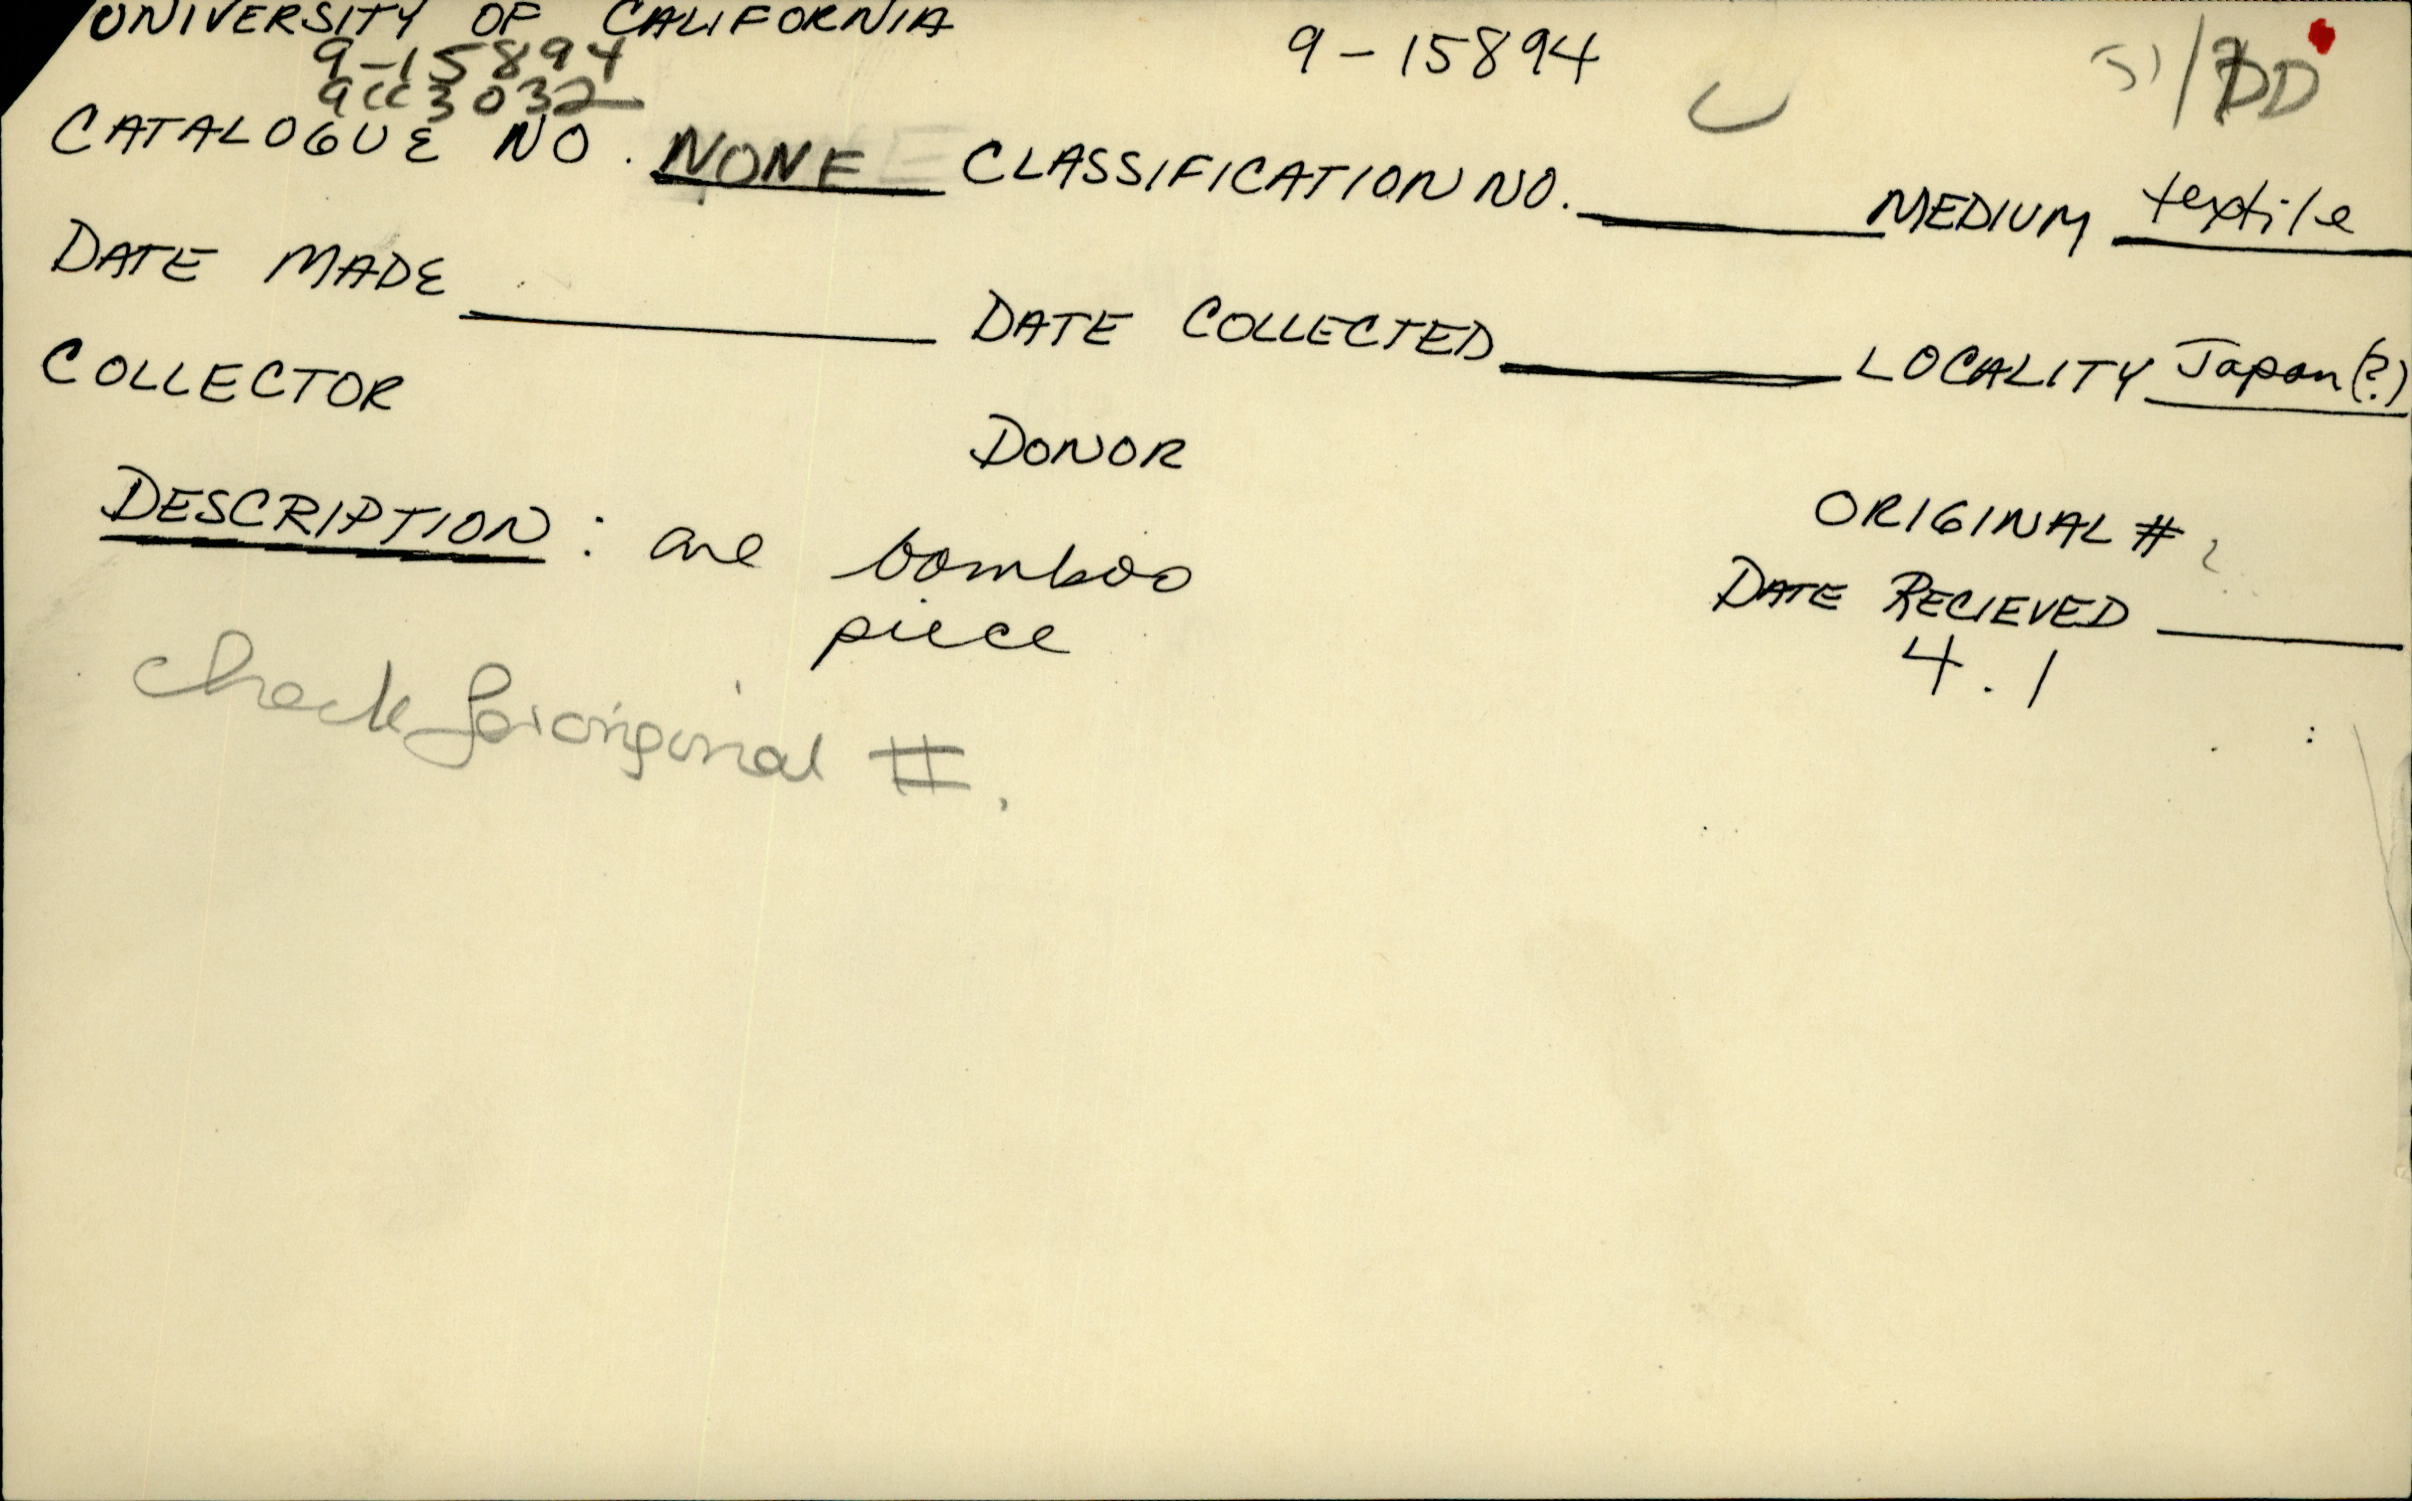 UNIVERSITY OF CALIFORNIA
9-15894
9-15894
acc 3032
CATALOGUE NO. NONE CLASSIFICATION NO. MEDIUM textile
DATE MADE DATE COLLECTED LOCALITY Japan (?)
COLLECTOR
DONOR
ORIGINAL # ?
DESCRIPTION: one bamboo
piece
DATE RECIEVED
4.1
Check for original #.